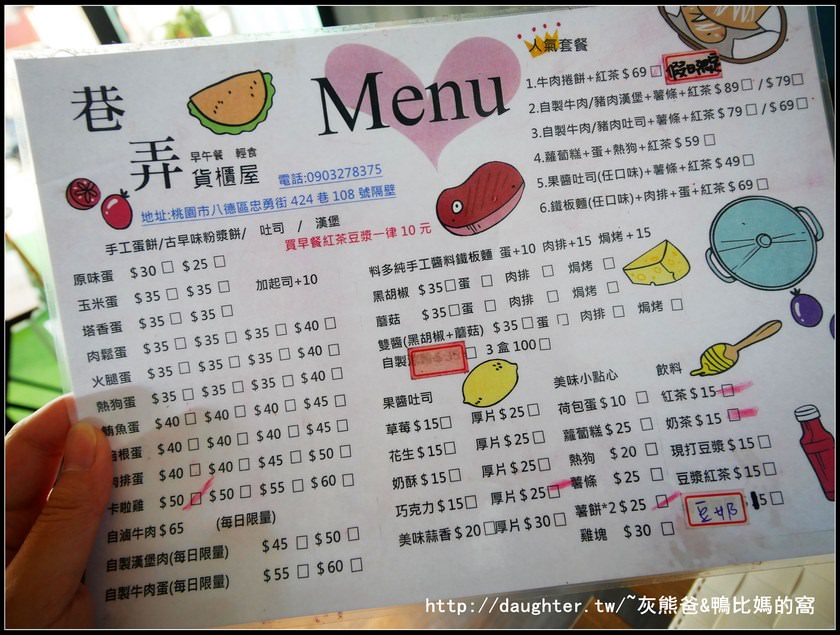 巷弄
早午餐 輕食
貨櫃屋
Menu
電話:0903278375
地址:桃園市八德區忠勇街 424 巷 108 號隔壁
手工蛋餅/古早味粉漿餅/ 吐司 / 漢堡
買早餐紅茶豆漿一律 10 元
原味蛋 $30□ $25□
加起司+10
玉米蛋 $35□ $35□
塔香蛋 $35□ $35□
肉鬆蛋 $35□ $35□ $35□ $40□
火腿蛋 $35□ $35□ $35□ $40□
熱狗蛋 $35□ $35□ $35□ $40□
鮪魚蛋 $40□ $40□ $40□ $45□
培根蛋 $40□ $40□ $40□ $45□
肉排蛋 $40□ $40□ $45□ $50□
卡啦雞 $50□ $50□ $55□ $60□
自滷牛肉$65 (每日限量)
自製漢堡肉(每日限量) $45□ $50□
自製牛肉蛋(每日限量) $55□ $60□
人氣套餐
1.牛肉捲餅+紅茶$69□ 假日限定
2.自製牛肉/豬肉漢堡+薯條+紅茶$89□/$79□
3.自製牛肉/豬肉吐司+薯條+紅茶$79□/$69□
4.蘿蔔糕+蛋+熱狗+紅茶$59□
5.果醬吐司(任口味)+薯條+紅茶$49□
6.鐵板麵(任口味)+肉排+蛋+紅茶$69□
料多純手工醬料鐵板麵 蛋+10 肉排+15 焗烤+15
黑胡椒 $35□蛋□ 肉排□ 焗烤□
蘑菇 $35□蛋□ 肉排□ 焗烤□
雙醬(黑胡椒+蘑菇) $35□蛋□ 肉排□ 焗烤□
自製 3盒100□
果醬吐司
草莓$15□ 厚片$25□
花生$15□ 厚片$25□
奶酥$15□ 厚片$25□
巧克力$15□ 厚片$25□
美味蒜香$20□厚片$30□
美味小點心
荷包蛋$10□
蘿蔔糕$25□
熱狗 $20□
薯條 $25□
薯餅*2$25□
雞塊 $30□
飲料
紅茶$15□
奶茶$15□
現打豆漿$15□
豆漿紅茶$15□
豆奶 $15□
http://daughter.tw/~灰熊爸&鴨比媽的窩